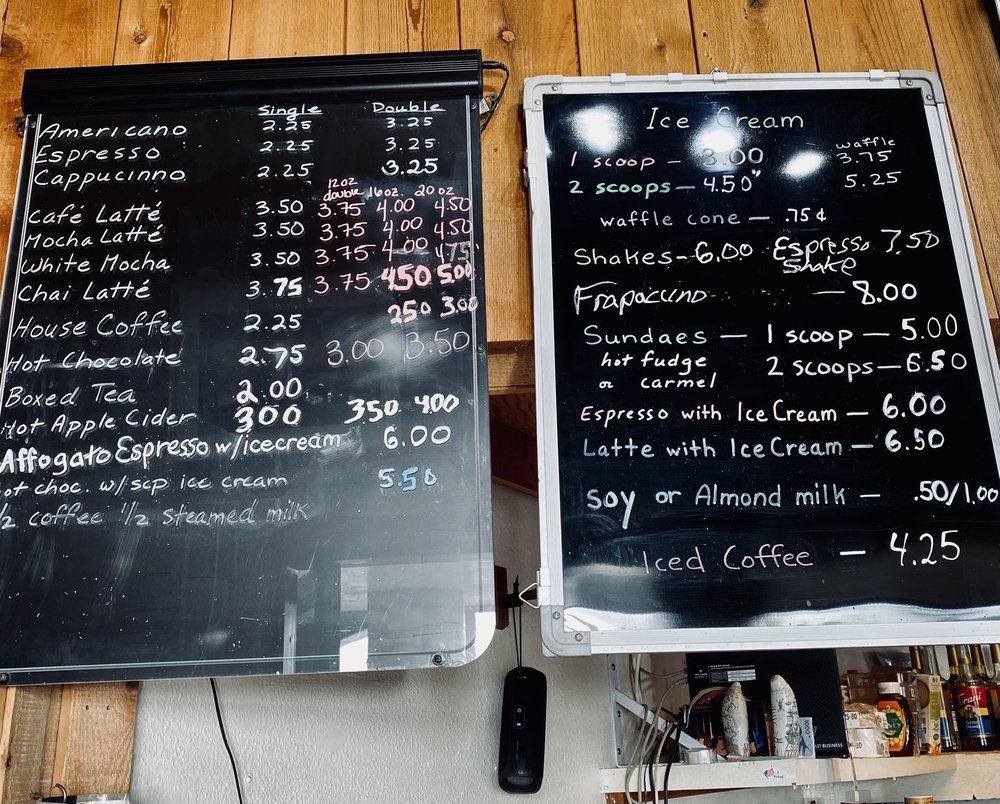 Single Double
Americano 2.25 3.25
Espresso 2.25 3.25
Cappucinno 2.25 3.25
12oz double 16oz. 20oz
Café Latté 3.50 3.75 4.00 4.50
Mocha Latté 3.50 3.75 4.00 4.50
White Mocha 3.50 3.75 4.00 4.75
Chai Latté 3.75 3.75 450 5.00
House Coffee 2.25 250 3.00
Hot Chocolate 2.75 3.00 3.50
Boxed Tea 2.00
Hot Apple Cider 300 350 400
Affogato Espresso w/icecream 6.00
ot choc. w/scp ice cream 5.50
/2 coffee 1/2 steamed milk
Ice Cream
waffle
1 scoop - 3.00 3.75
2 scoops - 4.50 5.25
waffle cone - .75¢
Shakes - 6.00 Espresso Shake 7.50
Frapaccino - 8.00
Sundaes - 1 scoop - 5.00
hot fudge 2 scoops - 6.50
or carmel
Espresso with Ice Cream - 6.00
Latte with Ice Cream - 6.50
Soy or Almond milk - .50/1.00
Iced Coffee - 4.25